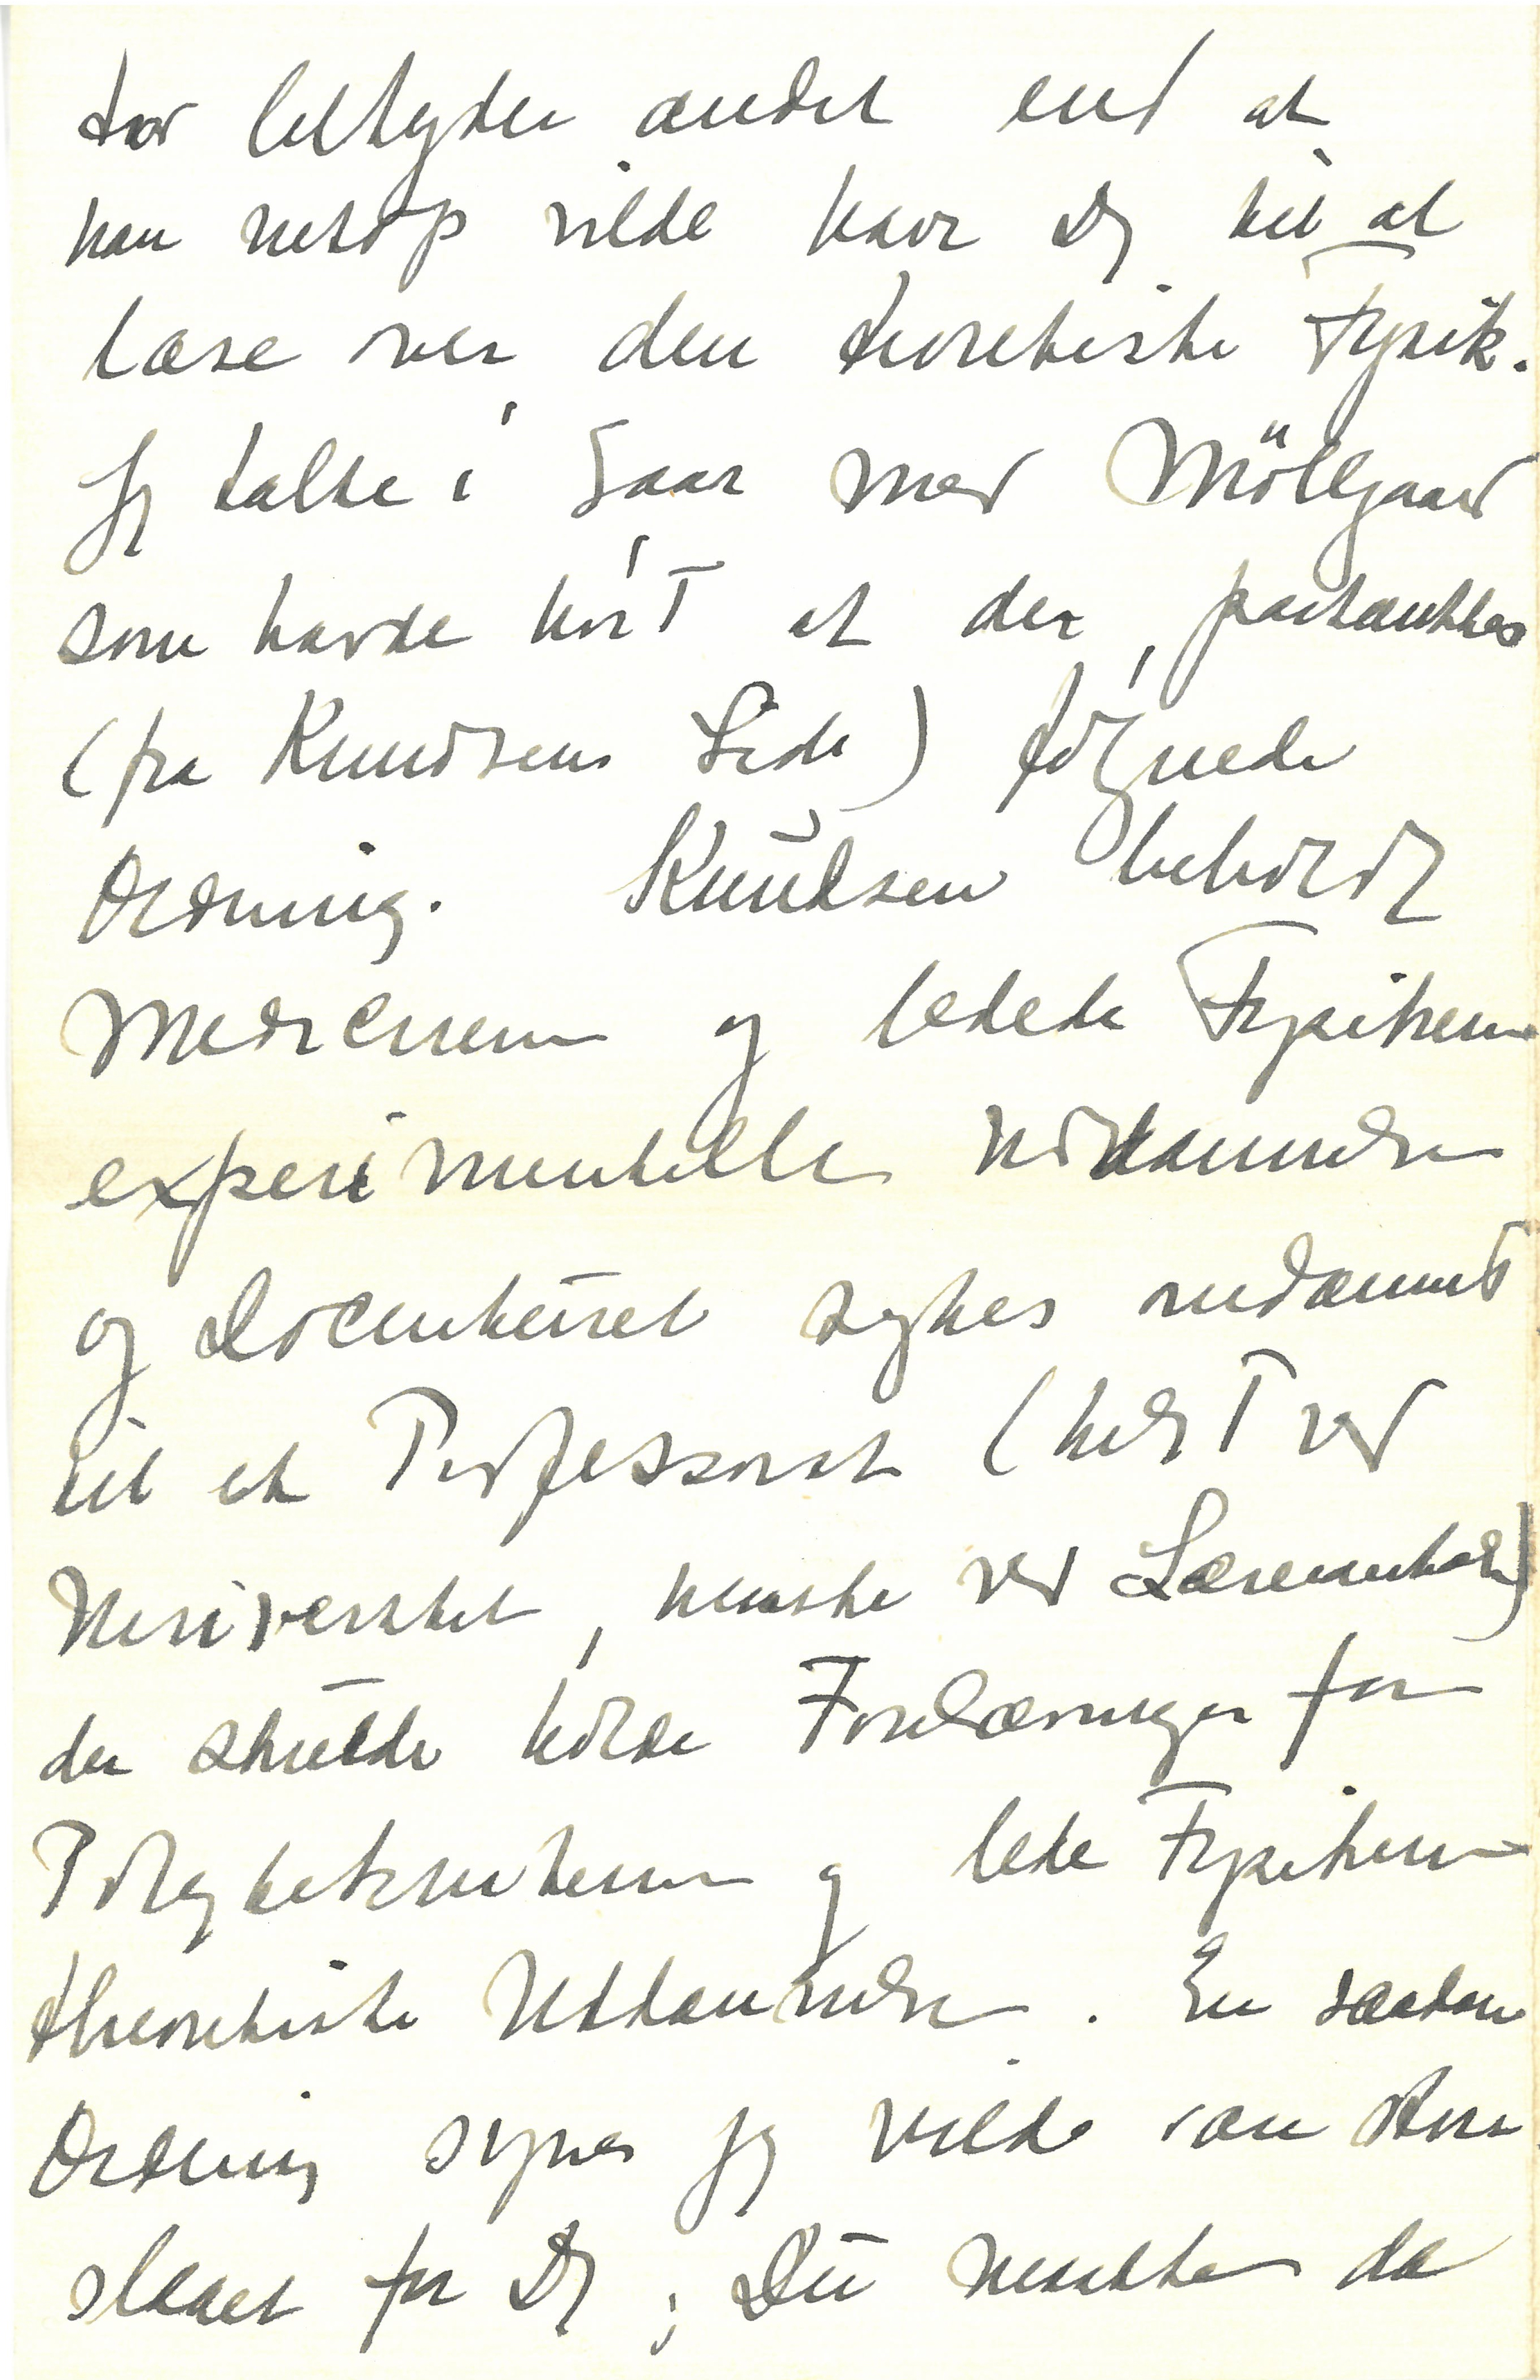 tor betyder andet end at
han netop vilde have Dig til at
læse over den theoretiske Fysik.
Jeg talte i Gaar med Möllgaard
som havde hört at der, paatænktes
(fra Knudsens Side) følgende
Ordning. Knudsen beholdt
Medicinerne og ledede Fysikernes
experimentelle Uddannelse
og Docenturet søgtes omdannet
til et Professorat (helst ved
Universitetet, maaske ved Læreanstalten)
der skulde holde Forelæsninger for
Polyteknikerne og lede Fysikernes
theoretiske Uddannelse. En saadan
Ordning synes jeg vilde være stor
slaaet for Dig; Du maatte da